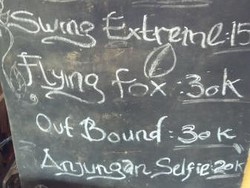 Swing Extreme:15
Flying fox:30k
Out Bound:30k
Anjungan Selfie:20k